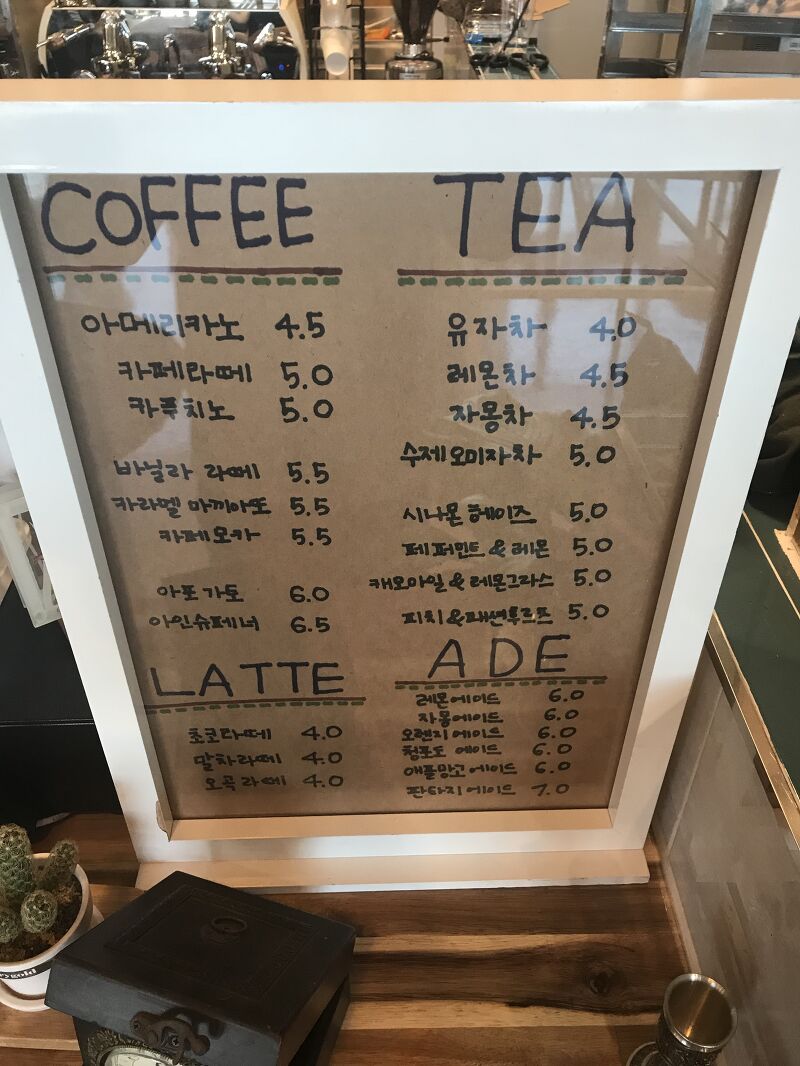 COFFEE
아메리카노 4.5
카페라떼 5.0
카푸치노 5.0
바닐라 라떼 5.5
카라멜 마끼아또 5.5
카페모카 5.5
아포가토 6.0
아인슈페너 6.5
LATTE
초코라떼 4.0
말차라떼 4.0
오곡라떼 4.0
TEA
유자차 4.0
레몬차 4.5
자몽차 4.5
수제오미자차 5.0
시나몬 헤이즈 5.0
페퍼민트&레몬 5.0
캐모마일&레몬그라스 5.0
피치&패션후르츠 5.0
ADE
레몬에이드 6.0
자몽에이드 6.0
오렌지에이드 6.0
청포도 에이드 6.0
애플망고에이드 6.0
판타지에이드 7.0